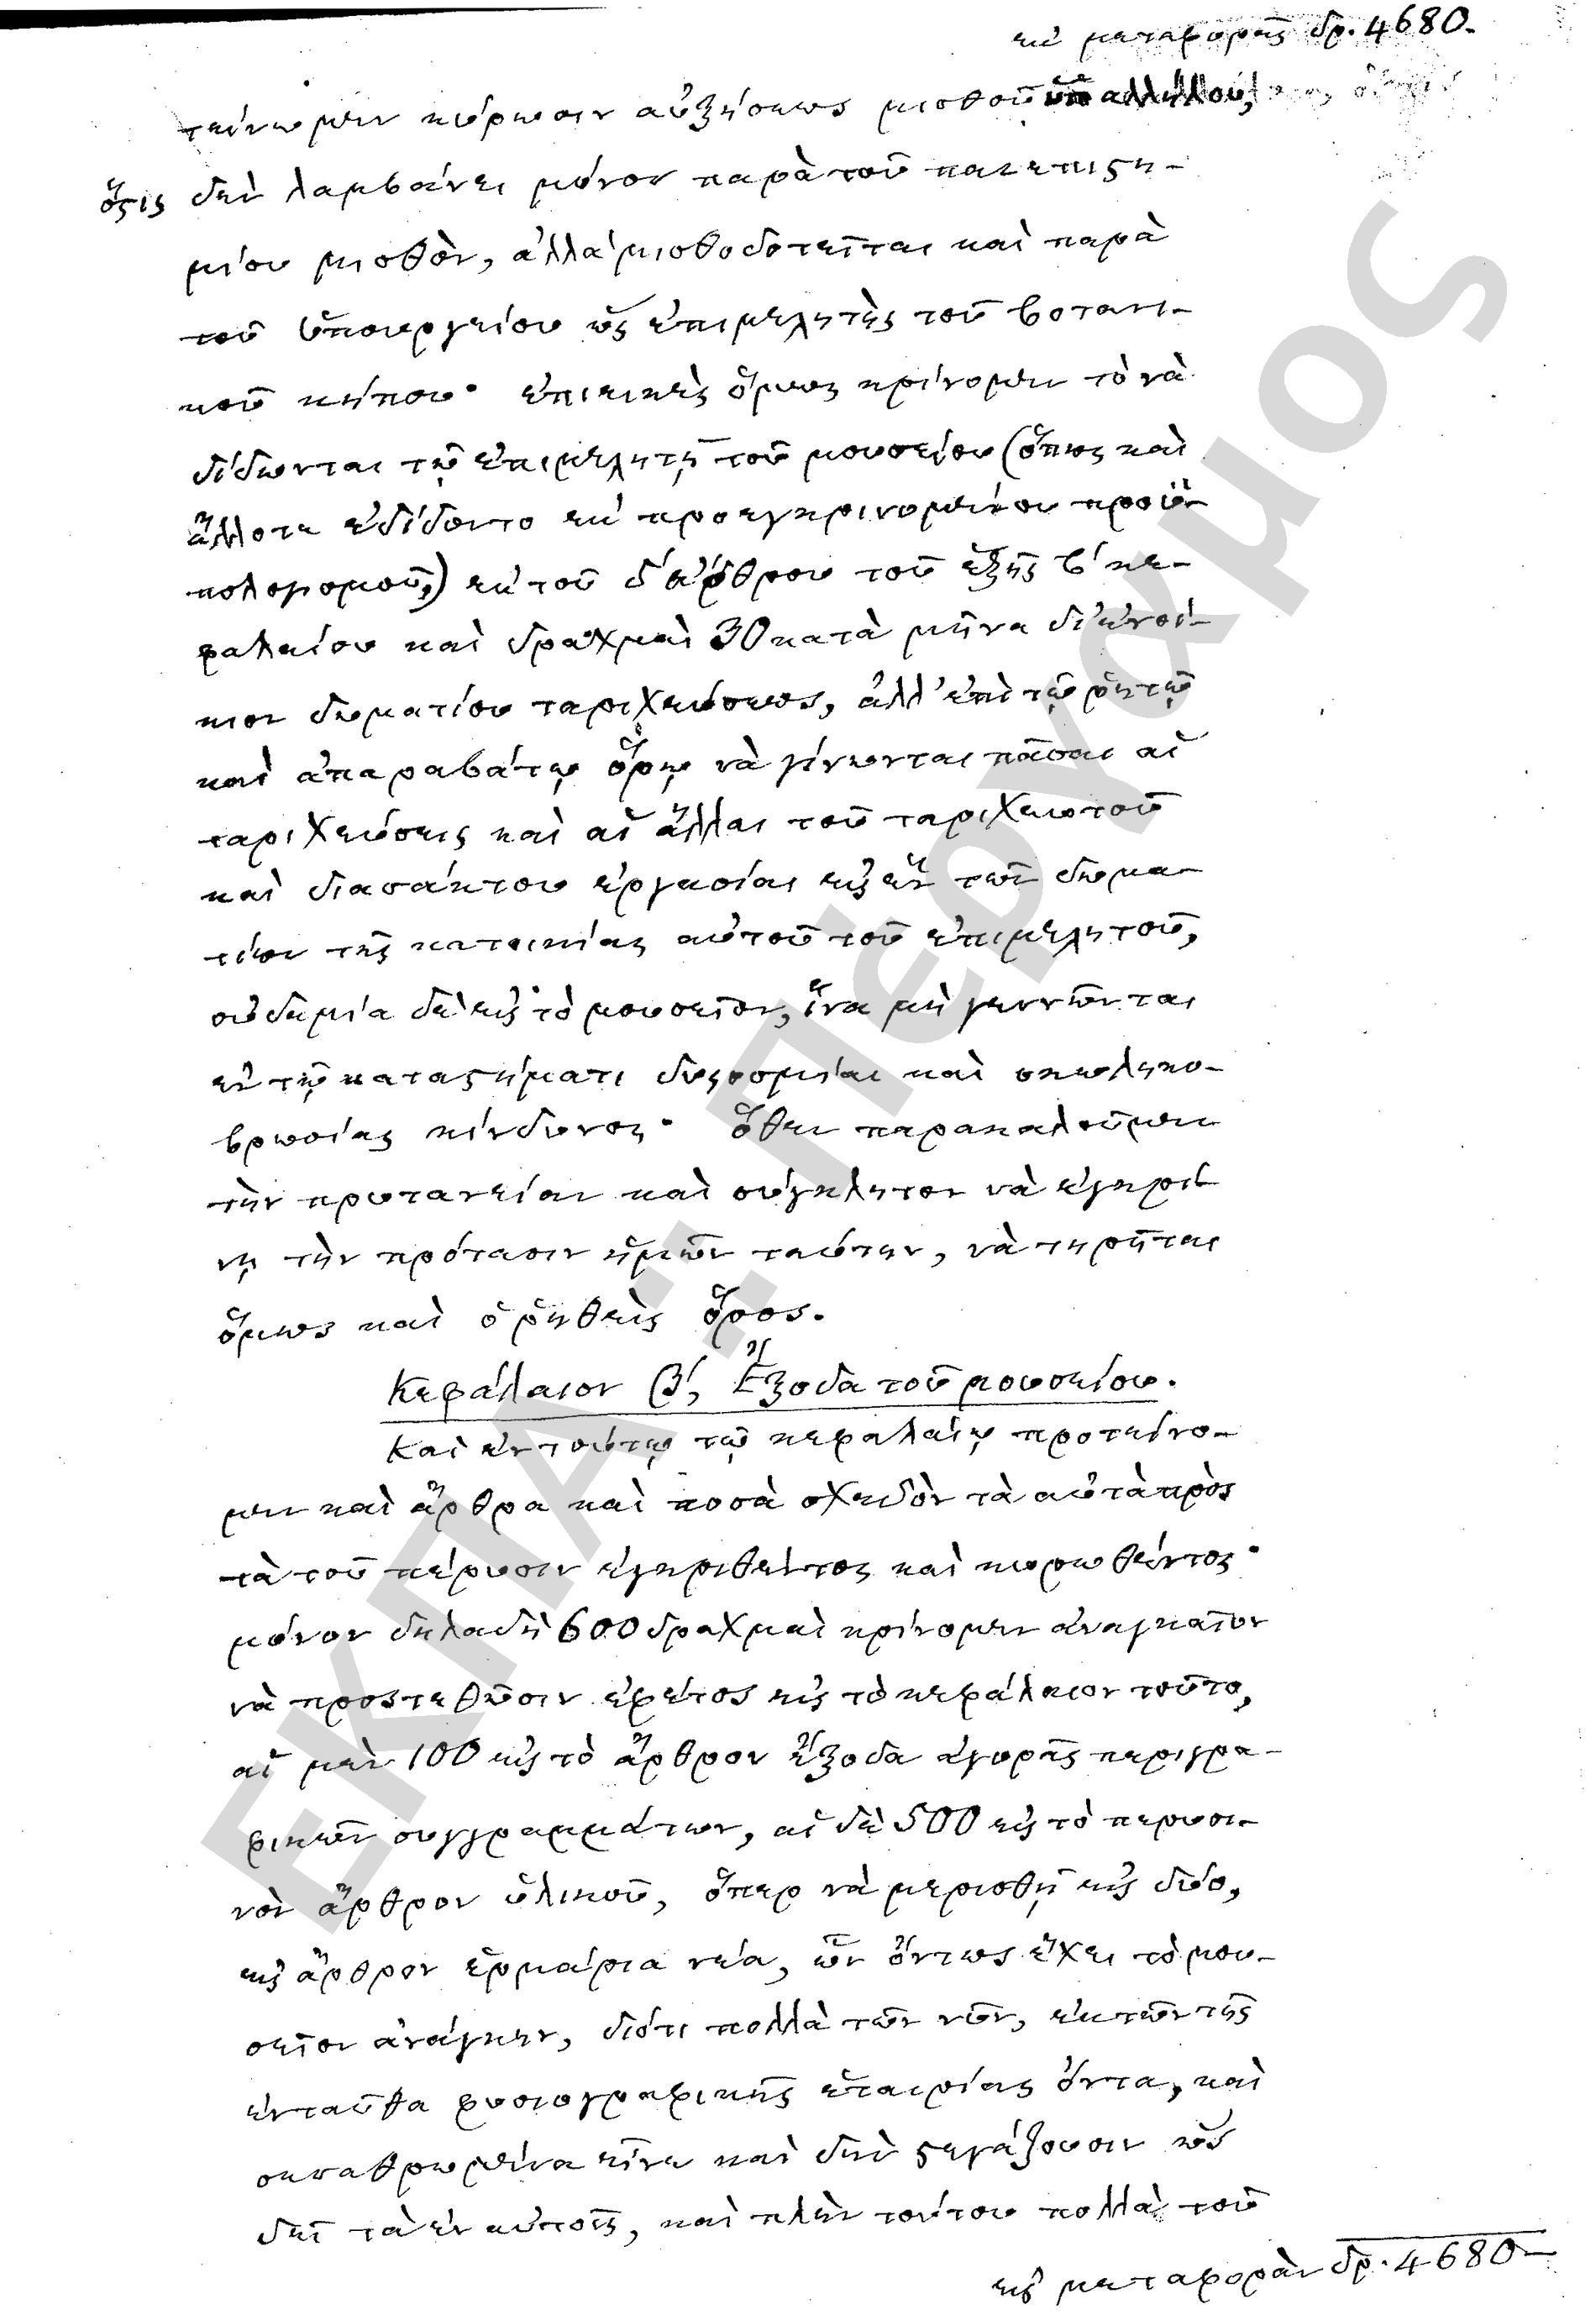 ἐκ μεταφορᾶς δρ. 4680.
τείνωμεν κύρωσιν αὐξήσεως μισθοῦ ὑπαλλήλου,
ὅστις δὲν λαμβάνει μόνον παρὰ τοῦ πανεπιστη-
μίου μισθὸν, ἀλλὰ μισθοδοτεῖται καὶ παρὰ
τοῦ ὑπουργείου ὡς ἐπιμελητὴς τοῦ βοτανι-
κοῦ κήπου· ἐπιεικὲς ὅμως κρίνομεν τὸ νὰ
δίδωνται τῷ ἐπιμελητῇ τοῦ μουσείου (ὅπως καὶ
ἄλλοτε ἐδίδοντο ἐκ προεγκρινομένου προϋ-
πολογισμοῦ,) ἐκ τοῦ δ΄ ἄρθρου τοῦ ἑξῆς β΄ κε-
φαλαίου καὶ δραχμαὶ 30 κατὰ μῆνα δι' ἐνοί-
κιον δωματίου ταριχεύσεως, ἀλλ' ἐπὶ τῷ ῥητῷ
καὶ ἀπαραβάτῳ ὅρῳ νὰ γίνωνται πᾶσαι αἱ
ταριχεύσεις καὶ αἱ ἄλλαι τοῦ ταριχευτοῦ
καὶ διασάκτου ἐργασίαι εἰς ἓν τῶν δωμα-
τίων τῆς κατοικίας αὐτοῦ τοῦ ἐπιμελητοῦ,
οὐδεμία δὲ εἰς τὸ μουσεῖον, ἵνα μὴ γεννῶνται
ἐν τῷ καταστήματι δυσοσμίαι καὶ σκωληκο-
βρωσίας κίνδυνος· ὅθεν παρακαλοῦμεν
τὴν πρυτανείαν καὶ σύγκλητον νὰ ἐγκρί-
νῃ τὴν πρότασιν ἡμῶν ταύτην, νὰ τηρῆται
ὅμως καὶ ὁ ῥηθεὶς ὅρος.
Κεφάλαιον β΄, Ἔξοδα τοῦ μουσείου.
Καὶ ἐν τούτῳ τῷ κεφαλαίῳ προτείνο-
μεν καὶ ἄρθρα καὶ ποσὰ σχεδὸν τὰ αὐτὰ πρὸς
τὰ τοῦ πέρυσιν ἐγκριθέντος καὶ κυρωθέντος·
μόνον δηλαδὴ 600 δραχμαὶ κρίνομεν ἀναγκαῖον
νὰ προστεθῶσιν ἐφέτος εἰς τὸ κεφάλαιον τοῦτο,
αἱ μὲν 100 εἰς τὸ ἄρθρον ἔξοδα ἀγορᾶς περιγρα-
φικῶν συγγραμμάτων, αἱ δὲ 500 εἰς τὸ περυσι-
νὸν ἄρθρον ὑλικοῦ, ὅπερ νὰ μερισθῇ εἰς δύο,
εἰς ἄρθρον ἑρμάρια νέα, ὧν ὄντως ἔχει τὸ μου-
σεῖον ἀνάγκην, διότι πολλὰ τῶν νῦν, ἐκ τῶν τῆς
ἐνταῦθα φυσιογραφικῆς ἑταιρίας ὄντα, καὶ
σεσαθρωμένα εἶνε καὶ δὲν στεγάζουσιν ὡς
δεῖ τὰ ἐν αὐτοῖς, καὶ πλὴν τούτου πολλὰ τοῦ
εἰς μεταφορὰν δρ. 4680
ΕΚΠΑ: Πέργαμος